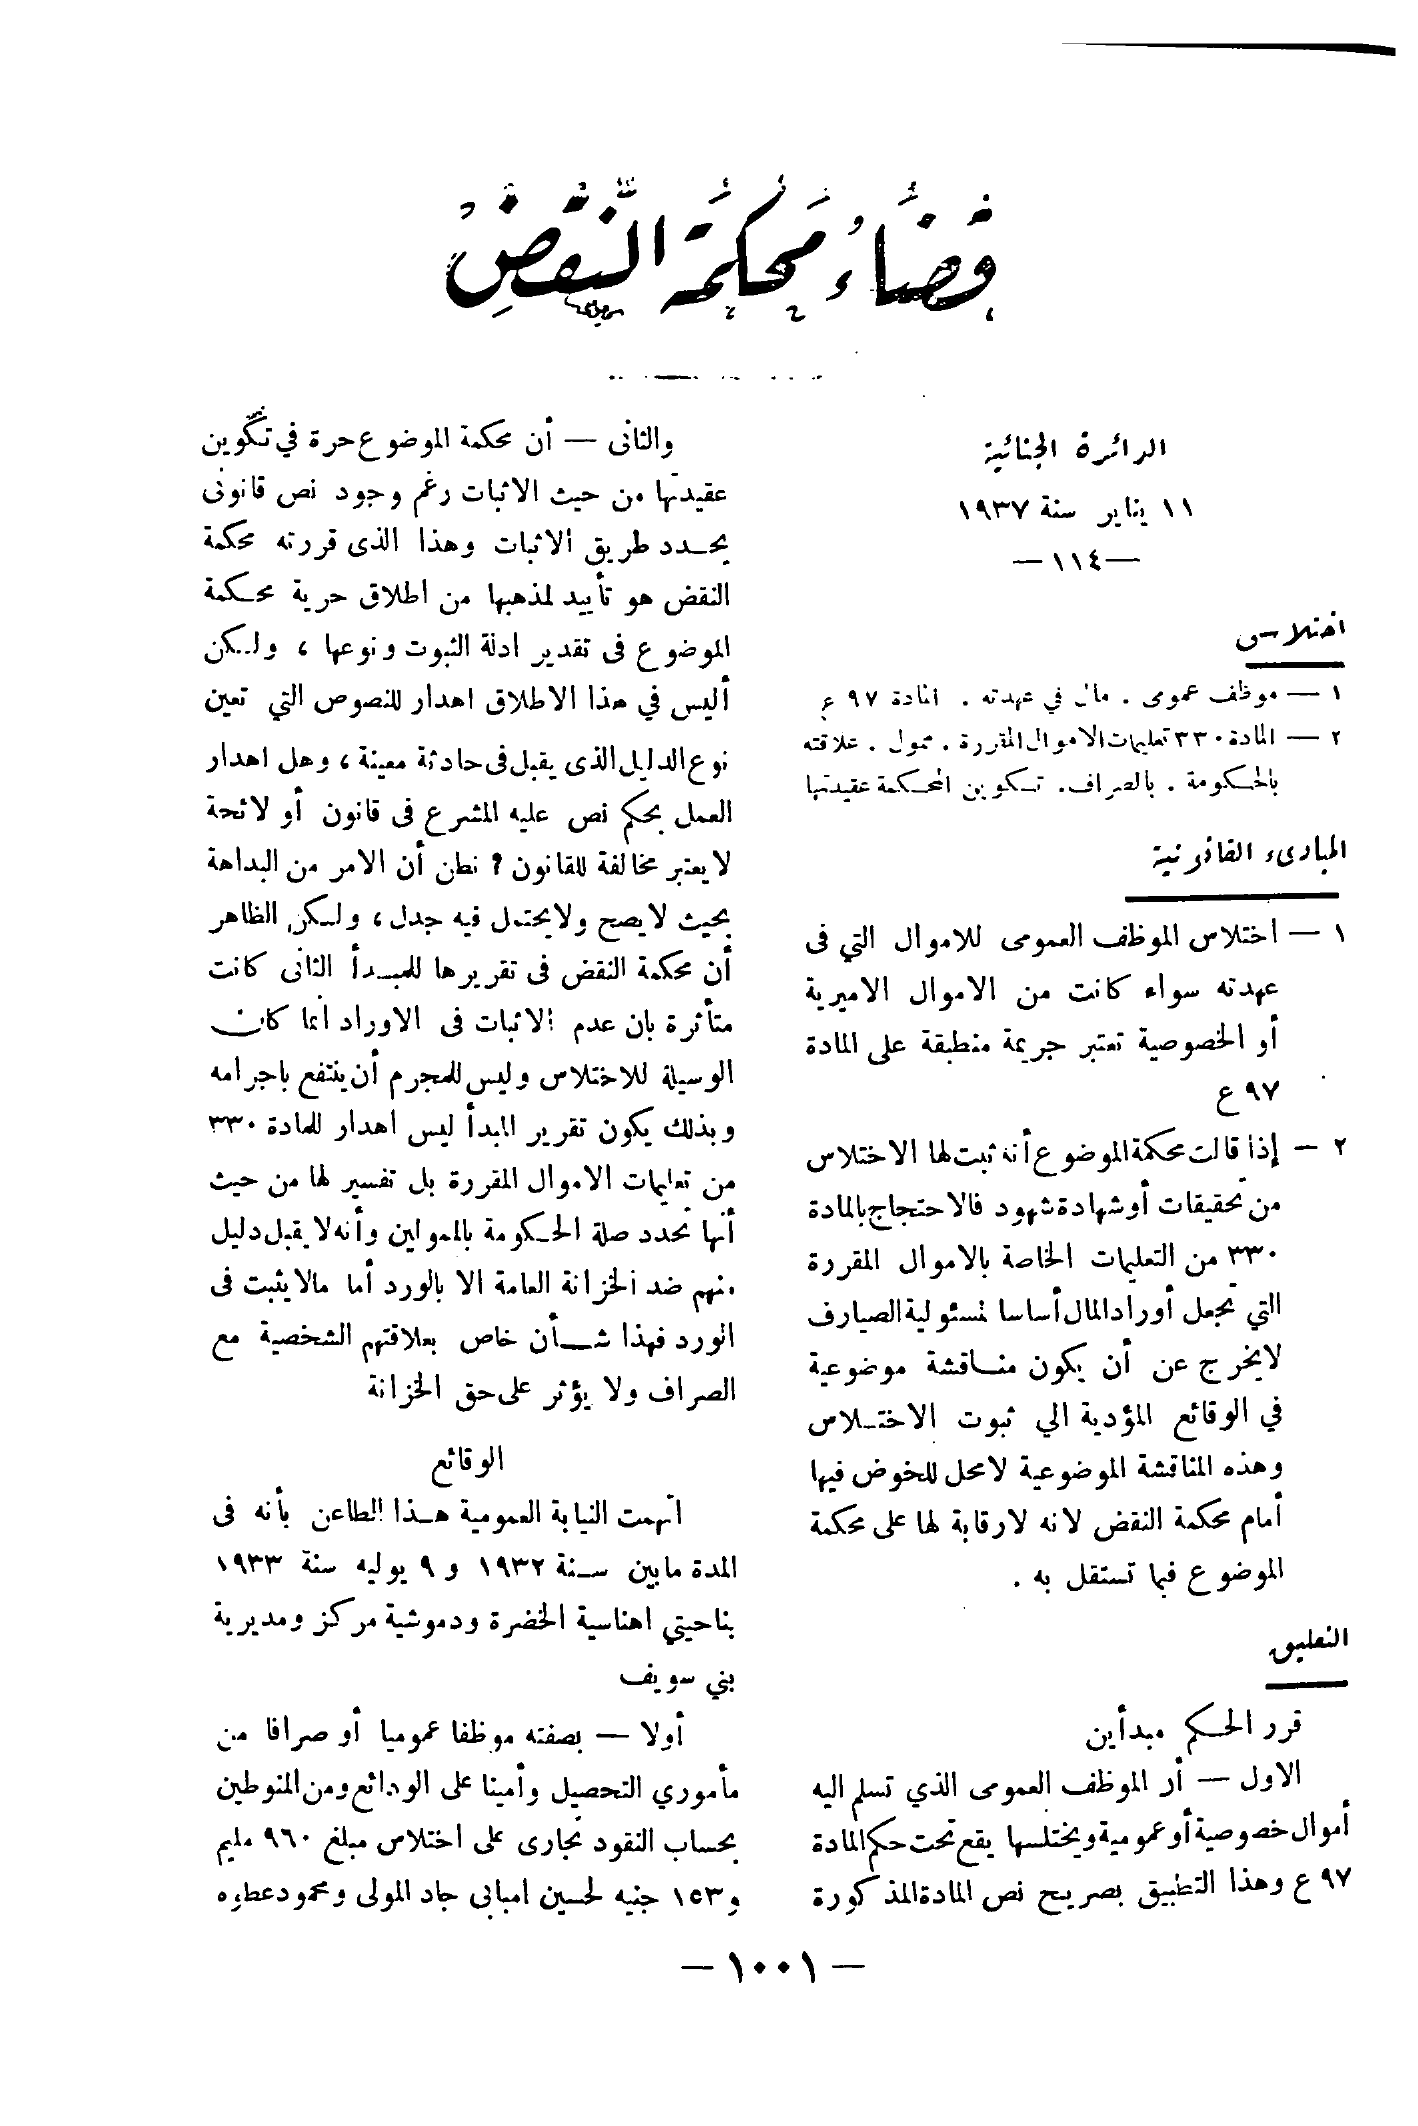 قضاء محكمة النقض
الدائرة الجنائية
١١ يناير سنة ١٩٣٧
—١١٤—
اختلاس
١ — موظف عمومى . مال في عهدته . المادة ٩٧ ع
٢ — المادة ٣٣٠ تعليمات الاموال المقررة . ممول . علاقته
بالحكومة . بالصراف . تكوين المحكمة عقيدتها
المبادىء القانونية
١ — اختلاس الموظف العمومى للاموال التي فى
عهدته سواء كانت من الاموال الاميرية
أو الخصوصية تعتبر جريمة منطبقة على المادة
٩٧ ع
٢ — إذا قالت محكمة الموضوع أنه ثبت لها الاختلاس
من تحقيقات أو شهادة شهود فالاحتجاج بالمادة
٣٣٠ من التعليمات الخاصة بالاموال المقررة
التي تجعل أوراد المال أساسا لمسئولية الصيارف
لا يخرج عن أن يكون مناقشة موضوعية
في الوقائع المؤدية الي ثبوت الاختلاس
وهذه المناقشة الموضوعية لا محل للخوض فيها
أمام محكمة النقض لانه لا رقابة لها على محكمة
الموضوع فيما تستقل به .
التعليق
قرر الحكم مبدأين
الاول — أن الموظف العمومى الذي تسلم اليه
أموال خصوصية أو عمومية ويختلسها يقع تحت حكم المادة
٩٧ ع وهذا التطبيق بصريح نص المادة المذكورة
والثانى — أن محكمة الموضوع حرة في تكوين
عقيدتها من حيث الاثبات رغم وجود نص قانونى
يحدد طريق الاثبات وهذا الذى قررته محكمة
النقض هو تأييد لمذهبها من اطلاق حرية محكمة
الموضوع فى تقدير ادلة الثبوت ونوعها ، ولكن
أليس في هذا الاطلاق اهدار للنصوص التي تعين
نوع الدليل الذى يقبل فى حادثة معينة ، وهل اهدار
العمل بحكم نص عليه المشرع فى قانون أو لائحة
لا يعتبر مخالفة للقانون ? نظن أن الامر من البداهة
بحيث لا يصح ولا يحتمل فيه جدل ، ولكن الظاهر
أن محكمة النقض فى تقريرها للمبدأ الثانى كانت
متأثرة بان عدم الاثبات فى الاوراد انما كان
الوسيلة للاختلاس وليس للمجرم أن ينتفع باجرامه
وبذلك يكون تقرير المبدأ ليس اهدار للمادة ٣٣٠
من تعليمات الاموال المقررة بل تفسير لها من حيث
أنها تحدد صلة الحكومة بالممولين وأنه لا يقبل دليل
منهم ضد الخزانة العامة الا بالورد أما مالا يثبت فى
الورد فهذا شأن خاص بعلاقتهم الشخصية مع
الصراف ولا يؤثر على حق الخزانة
الوقائع
اتهمت النيابة العمومية هذا الطاعن بأنه فى
المدة مابين سنة ١٩٣٢ و ٩ يوليه سنة ١٩٣٣
بناحيتي اهناسية الخضرة ودموشية مركز ومديرية
بني سويف
أولا — بصفته موظفا عموميا أو صرافا من
مأموري التحصيل وأمينا على الودائع ومن المنوطين
بحساب النقود تجارى على اختلاس مبلغ ٩٦٠ مليم
و ١٥٣ جنيه لحسين امبابى جاد المولى ومحمود عطوه
— ١٠٠١ —